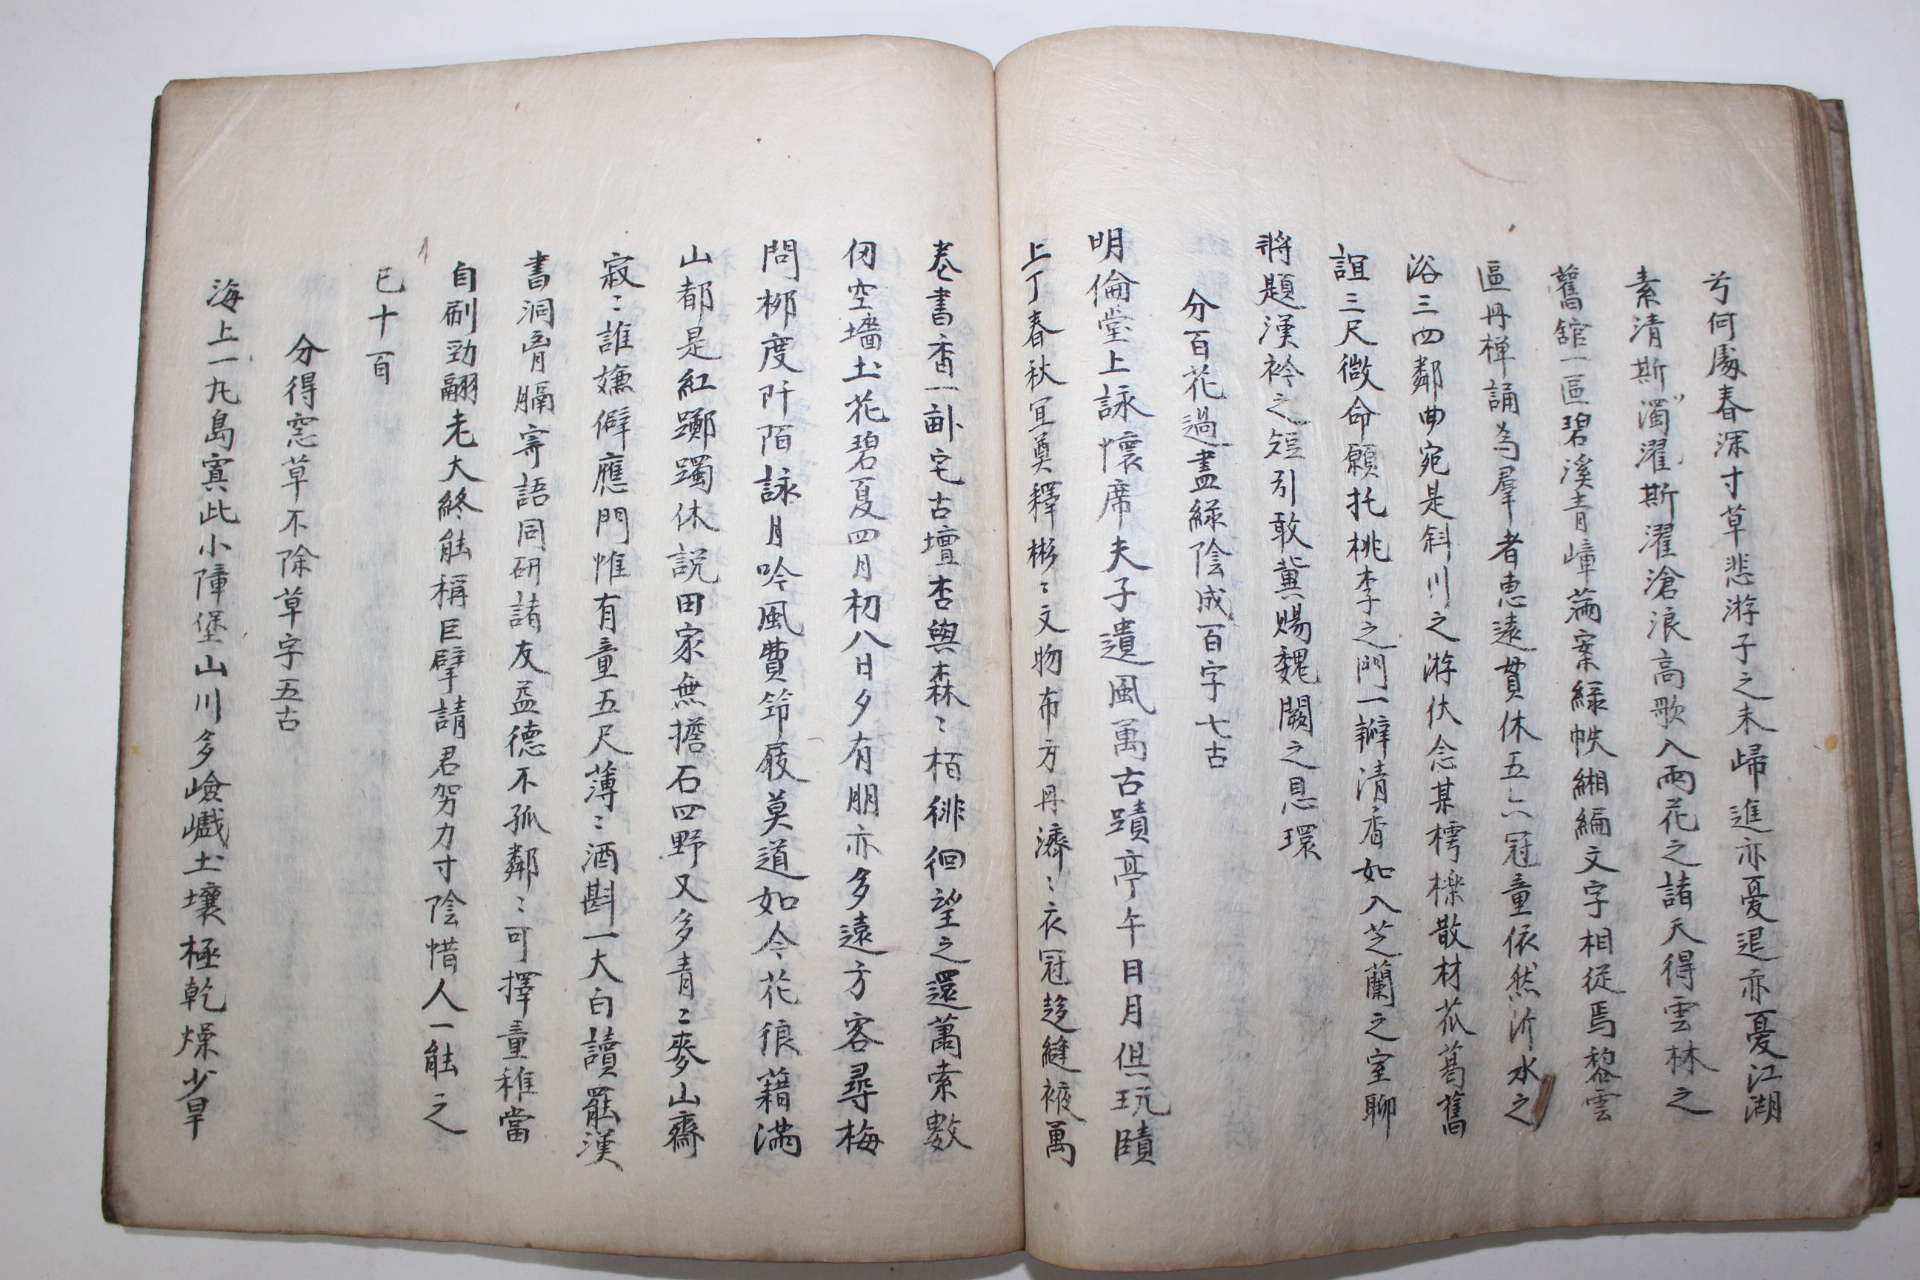 兮何處春深寸草悲游子之未歸進亦憂退亦憂江湖
素清斯濁濯斯濯滄浪高歌入雨花之諸天得雲林之
舊舘一區碧溪青嶂萬案緑帙緗編文字相從焉黎雲
區丹樿誦為羣者惠遠貫休五六冠童依然沂水之
浴三四鄰曲宛是斜川之游伏念某樗櫟散材菰葛舊
誼三尺微命願托桃李之門一瓣清香如入芝蘭之室聊
將題漢衿之短引敢冀賜魏闕之息環
分百花過盡緑陰成一百字七古
明倫堂上詠懷席夫子遺風萬古蹟亭午日月但玩賾
上丁春秋宜奠釋彬〻文物布方丹濟〻衣冠趍縫掖萬
卷書香一畝宅古壇杏與森〻栢徘徊望之還蕭索數
仞空墻土花碧夏四月初八日夕有朋亦多遠方客尋梅
問柳度阡陌詠月吟風費笻屐莫道如今花狼藉滿
山都是紅躑躅休説田家無擔石四野又多青〻麥山齋
寂〻誰嫌僻應門惟有童五尺薄〻酒斟一大白讀罷漢
書洞膏膈寄語同研諸友益德不孤鄰〻可擇童稚當
自刷勁翮老大終能稱巨擘請君努力寸陰惜人一能之
已十百
分得窓草不除草字五古
海上一九島寘此小障堡山川多嶮巇土壤極乾燥少旱